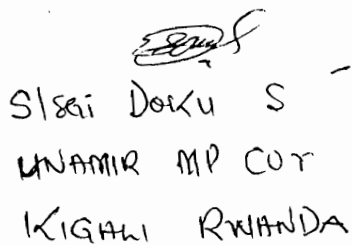 S/SGT DOKU S
UNAMIR MP COY
KIGALI RWANDA